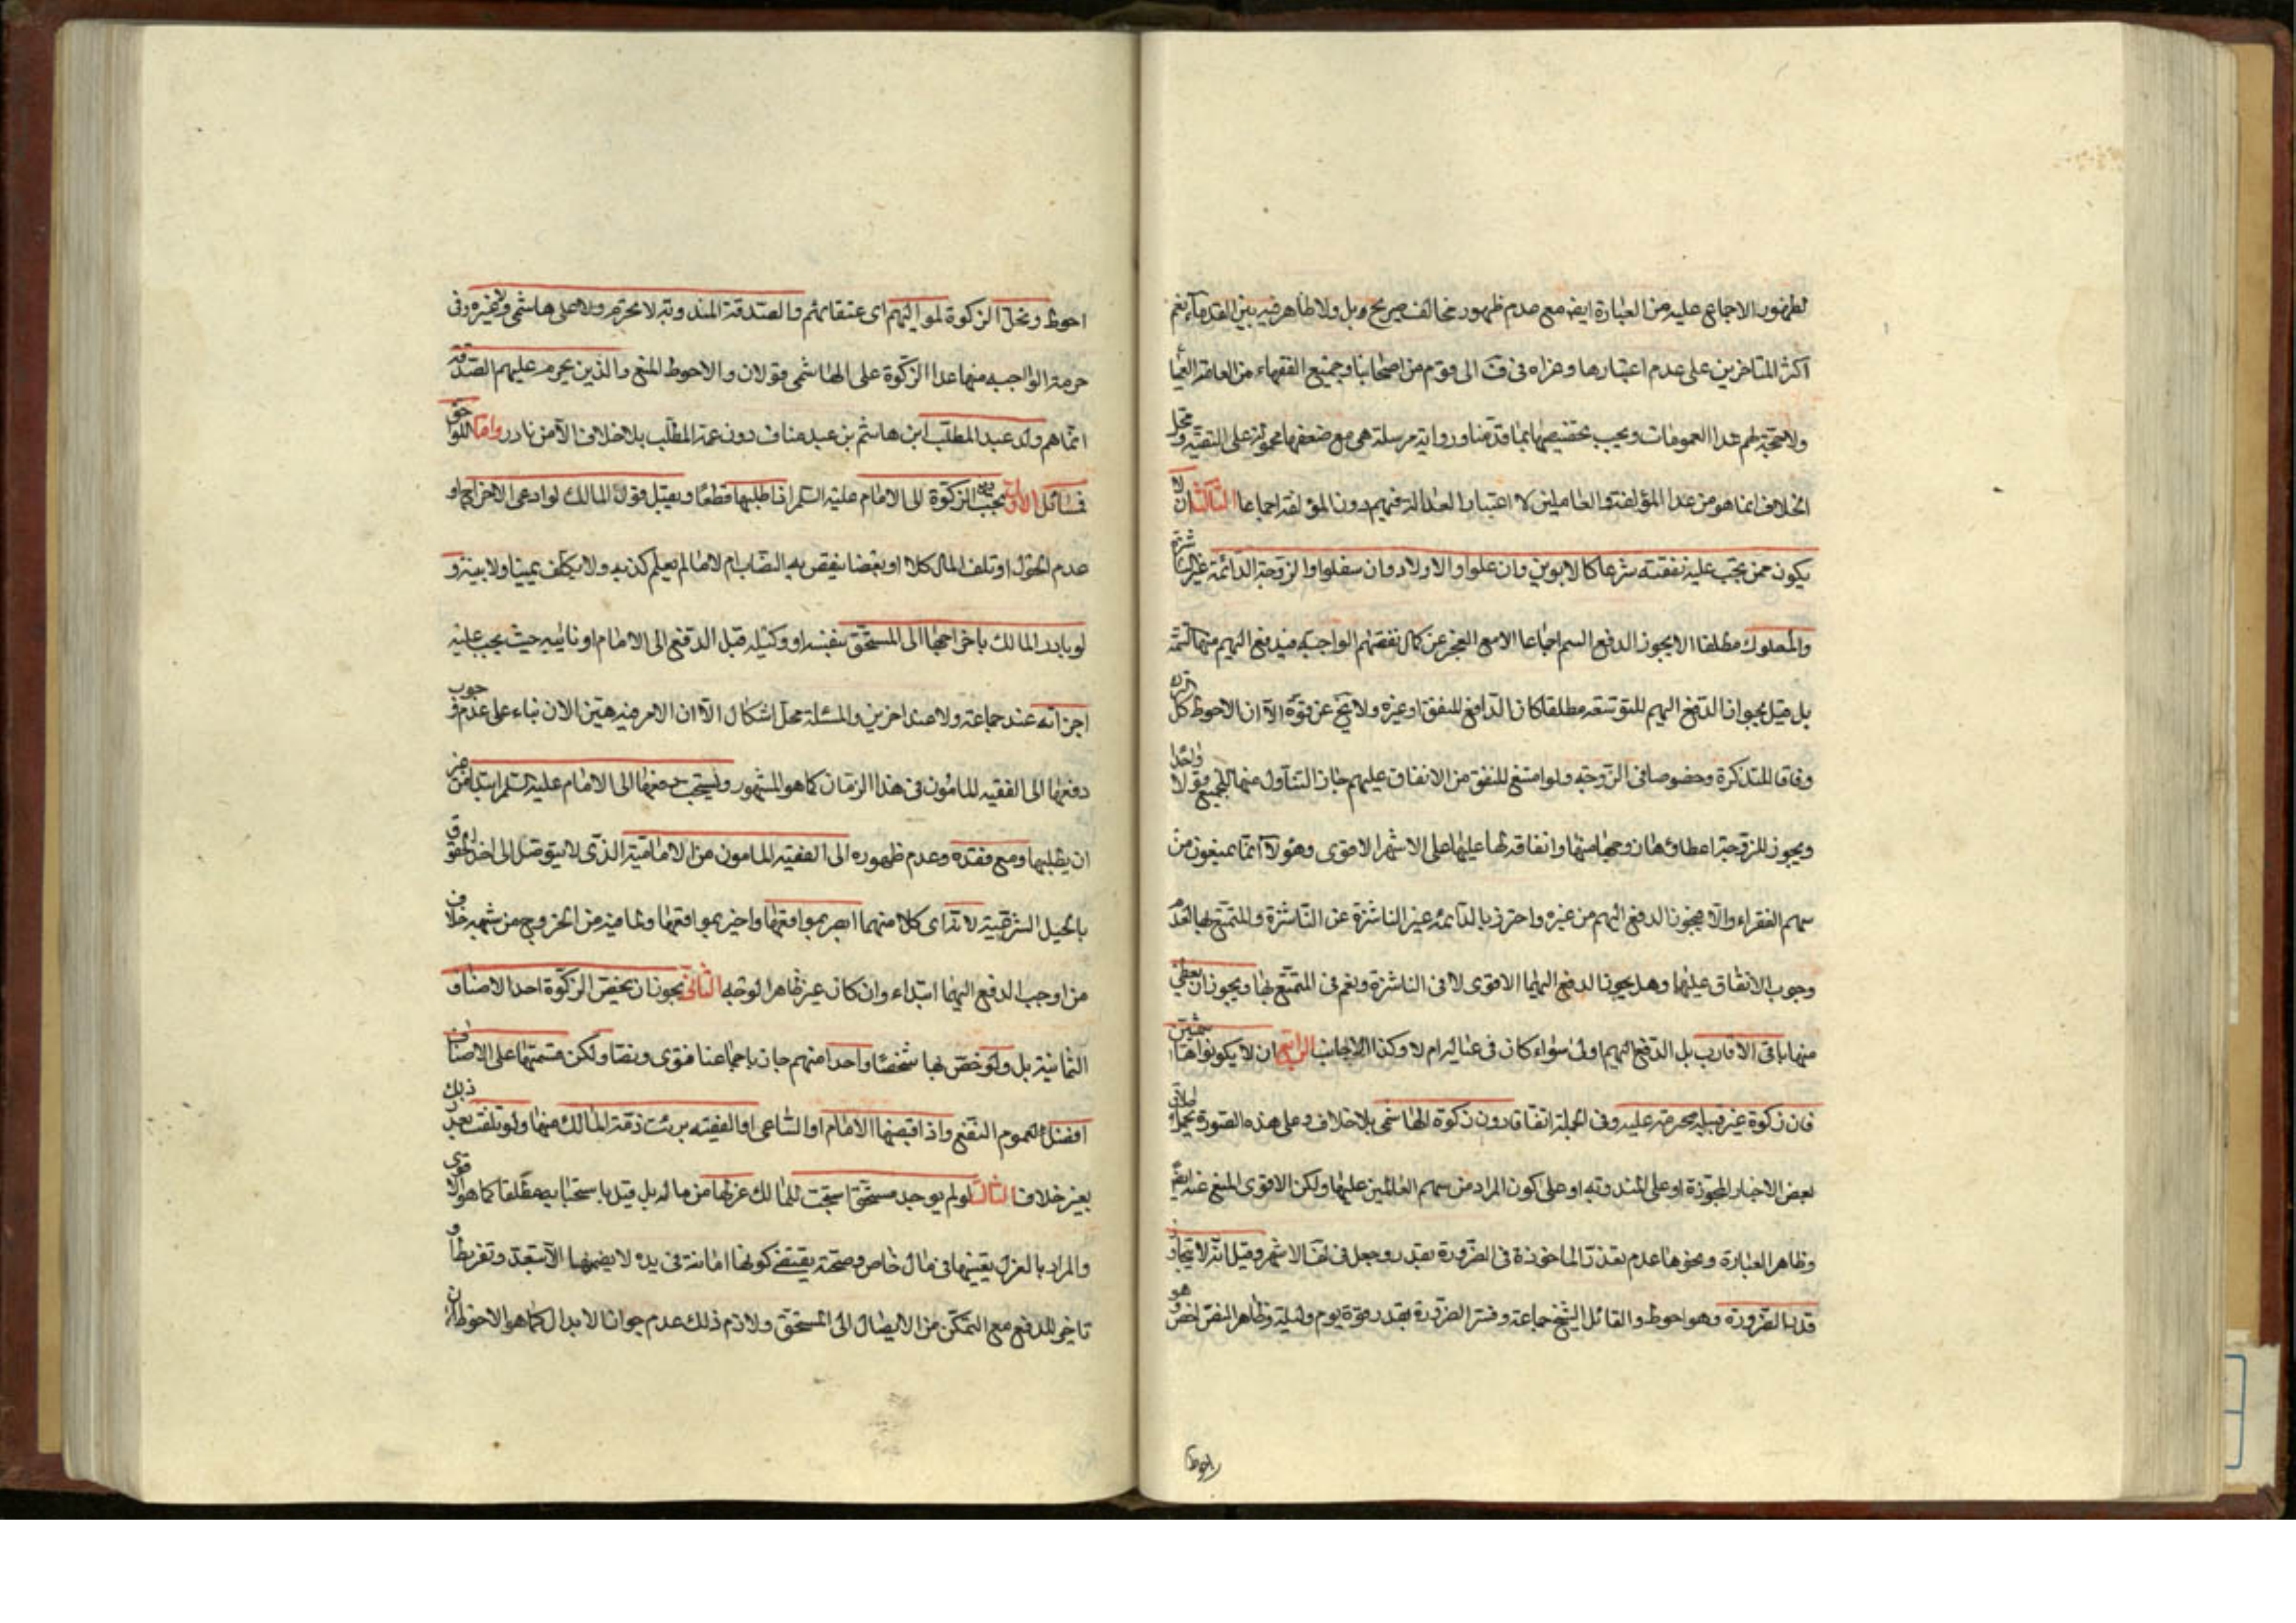 لظهور الاجماع عليه من العبارة ايضا مع عدم ظهور مخالف صريح وبل ولا ظاهر فيه بين القدماء نعم
اكثر المتاخرين على عدم اعتبارها وعزاه فى ف الى قوم من اصحابنا وجميع الفقهاء من العامة العميا
ولا حجة لهم عدا العمومات ويجب تخصيصها بما قدمنا ورواية مرسلة هى مع ضعفها محمولة على التقية ومحل
الخلاف انما هو من عدا المؤلفة والعاملين لاعتبار العدالة فيهم دون المؤلفة اجماعا الثالث ان لا
يكون ممن تجب عليه نفقته شرعا كالابوين وان علوا والاولاد وان سفلوا والزوجة الدائمة غير الناشزة
والمملوك مطلقا لا يجوز الدفع اليهم اجماعا الا مع العجز عن كمال نفقتهم الواجبة فيدفع اليهم منها التتمة
بل قيل بجواز الدفع اليهم للتوسعة مطلقا كان الدافع المنفق او غيره ولا يخ عن قوة الا ان الاحوط الترك
وفاقا للتذكرة وخصوصا فى الزوجة ولو امتنع المنفق من الانفاق عليهم جاز التناول منها للجميع قولا واحدا
ويجوز للزوجة اعطاء زوجها منها وانفاقه لها عليها على الاشهر الاقوى وهؤلاء انما يمنعون من
سهم الفقراء والا فيجوز الدفع اليهم من غيره واحترز بالدائمة غير الناشزة عن الناشزة والمتمتع بها لعدم
وجوب الانفاق عليها وهل يجوز الدفع اليهما الاقوى لا فى الناشزة ونعم فى المتمتع بها ويجوز ان يعطى
منها باقى الاقارب بل الدفع اليهم اولى سواء كان فى عياله ام لا وكذا الاجانب الرابع ان لا يكونوا هاشميين
فان زكوة غير قبيله محرمة عليه وفى الجملة اتفاقا دون زكوة الهاشمى بلا خلاف وعلى هذه الصورة يحمل اطلاق
بعض الاخبار المجوزة او على المندوبة او على كون المراد من سهم العاملين عليها ولكن الاقوى المنع عنه ايضا
وظاهر العبارة ونحوها عدم تقدر الماخوذة فى الضرورة بقدر وجعل فى لف الاشهر وقيل انه لا يتجاوز
قدر الضرورة وهو احوط والقائل الشيخ جماعة وفسر الضرورة بقدر قوة يوم وليلة وظاهر النص اخص وهو
احوط
احوط وتحل الزكوة لمواليهم اى عتقائهم والصدقة المندوبة لا تحرم ولا على هاشمى ولا غيره وفى
حرمة الواجبة منها عدا الزكوة على الهاشمى قولان والاحوط المنع والذين يحرم عليهم الصدقة
انما هم ولد عبد المطلب ابن هاشم بن عبد مناف دون عمه المطلب بلا خلاف الا من نادر واما اللواحق
فمسائل الاولى يجب دفع الزكوة الى الامام عليه السلام اذا طلبها قطعا ويقبل قول المالك لو ادعى الاخراج او
عدم الحول او تلف المال كلا او بعضا ينقص به النصاب ام لا ما لم يعلم كذبه ولا يكلف يمينا ولا بينة و
لو بادر المالك باخراجها الى المستحق بنفسه او وكيله قبل الدفع الى الامام او نائبه حيث يجب عليه
اجزاته عند جماعة ولا عند اخرين والمسئلة محل اشكال الا ان الامر فيه هين الان بناء على عدم وجوب
دفعها الى الفقيه المامون فى هذا الزمان كما هو المشهور ويستحب دفعها الى الامام عليه السلم ابتداء من غير
ان يطلبها ومع فقده وعدم ظهوره الى الفقيه المامون من الامامية الذى لا يتوصل الى اخذ الحقوق
بالحيل الشرعية لانه اى كلا منهما ابصر بمواقعها واخبر بمواقعها ولما فيه من الخروج من شبهة خلاف
من اوجب الدفع اليهما ابتداء وان كان غير ظاهر الوجه الثانى يجوز ان يخص الزكوة احد الاصناف
الثمانية بل ولو خص بها شخصا واحدا منهم جاز باجماعنا فتوى ونصا ولكن قسمتها على الاصناف
افضل لعموم النفع واذا قبضها الامام او الساعى او الفقيه برئت ذمة المالك منها ولو تلفت بعد ذلك
بغير خلاف الثالث لو لم يوجد مستحق استحب للمالك عزلها من ماله بل قيل باستحبابه مطلقا كما هو الاقوى
والمراد بالعزل تعيينها فى مال خاص وصحته يقتضى كونها امانة فى يده لا يضمنها الا بتعد وتفريط او
تاخير الدفع مع التمكن من الايصال الى المستحق ولازم ذلك عدم جواز الابدال كما هو الاحوط ان